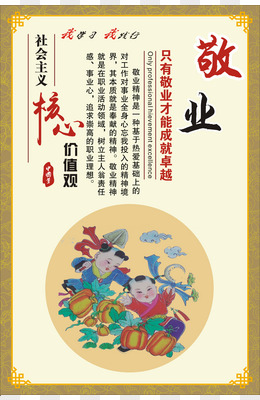 我学习 我践行
敬业
只有敬业才能成就卓越
Only professional hievement excellence
敬业精神是一种基于热爱基础上的
对工作对事业全身心忘我投入的精神境
界，其本质就是奉献的精神。敬业精神
就是在职业活动领域，树立主人翁责任
感、事业心，追求崇高的职业理想。
社会主义
核心
价值观
中国梦